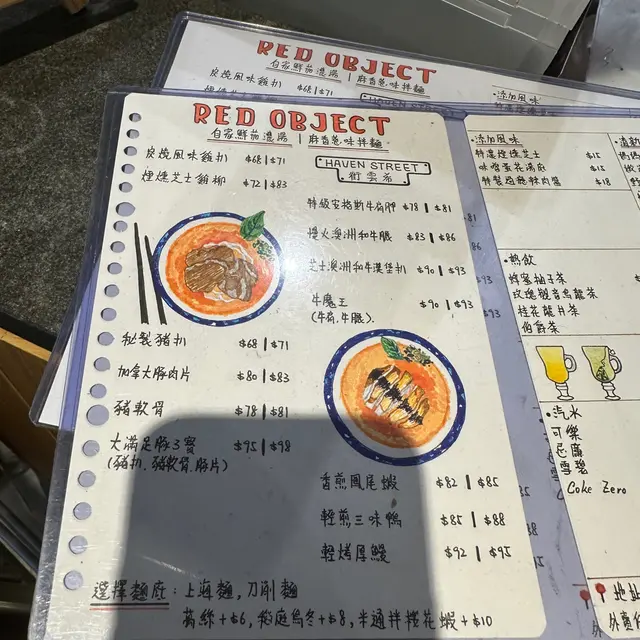 RED OBJECT
自家鮮茄濃湯 | 麻香葱味拌麵
炭燒風味雞扒 $68 | $71
RED OBJECT
自家鮮茄濃湯 | 麻香葱味拌麵
HAVEN STREET
炭燒風味雞扒 $68 | $71
煙燻芝士雞柳 $72 | $83
特級安格斯牛肩胛 $78 | $81
慢火澳洲和牛腩 $83 | $86
芝士澳洲和牛漢堡扒 $90 | $93
牛魔王 $90 | $93
(牛肩.牛腩)
秘製豬扒 $68 | $71
加拿大豚肉片 $80 | $83
豬軟骨 $78 | $81
大滿足豚3饗 $95 | $98
(豬扒.豬軟骨.豚片)
香煎鳳尾蝦 $82 | $85
輕煎三味鴨 $85 | $88
輕烤厚鰻 $92 | $95
選擇麵底: 上海麵, 刀削麵
+$6, 稻庭烏冬+$8, 半通拌櫻花蝦+$10
•添加風味
特濃煙燻芝士 $15
$15
$18
•熱飲
蜂蜜柚子茶
玫瑰觀音烏龍茶
桂花龍井茶
伯爵茶
•汽水
可樂
忌廉
雪碧
Coke Zero
地址
外賣